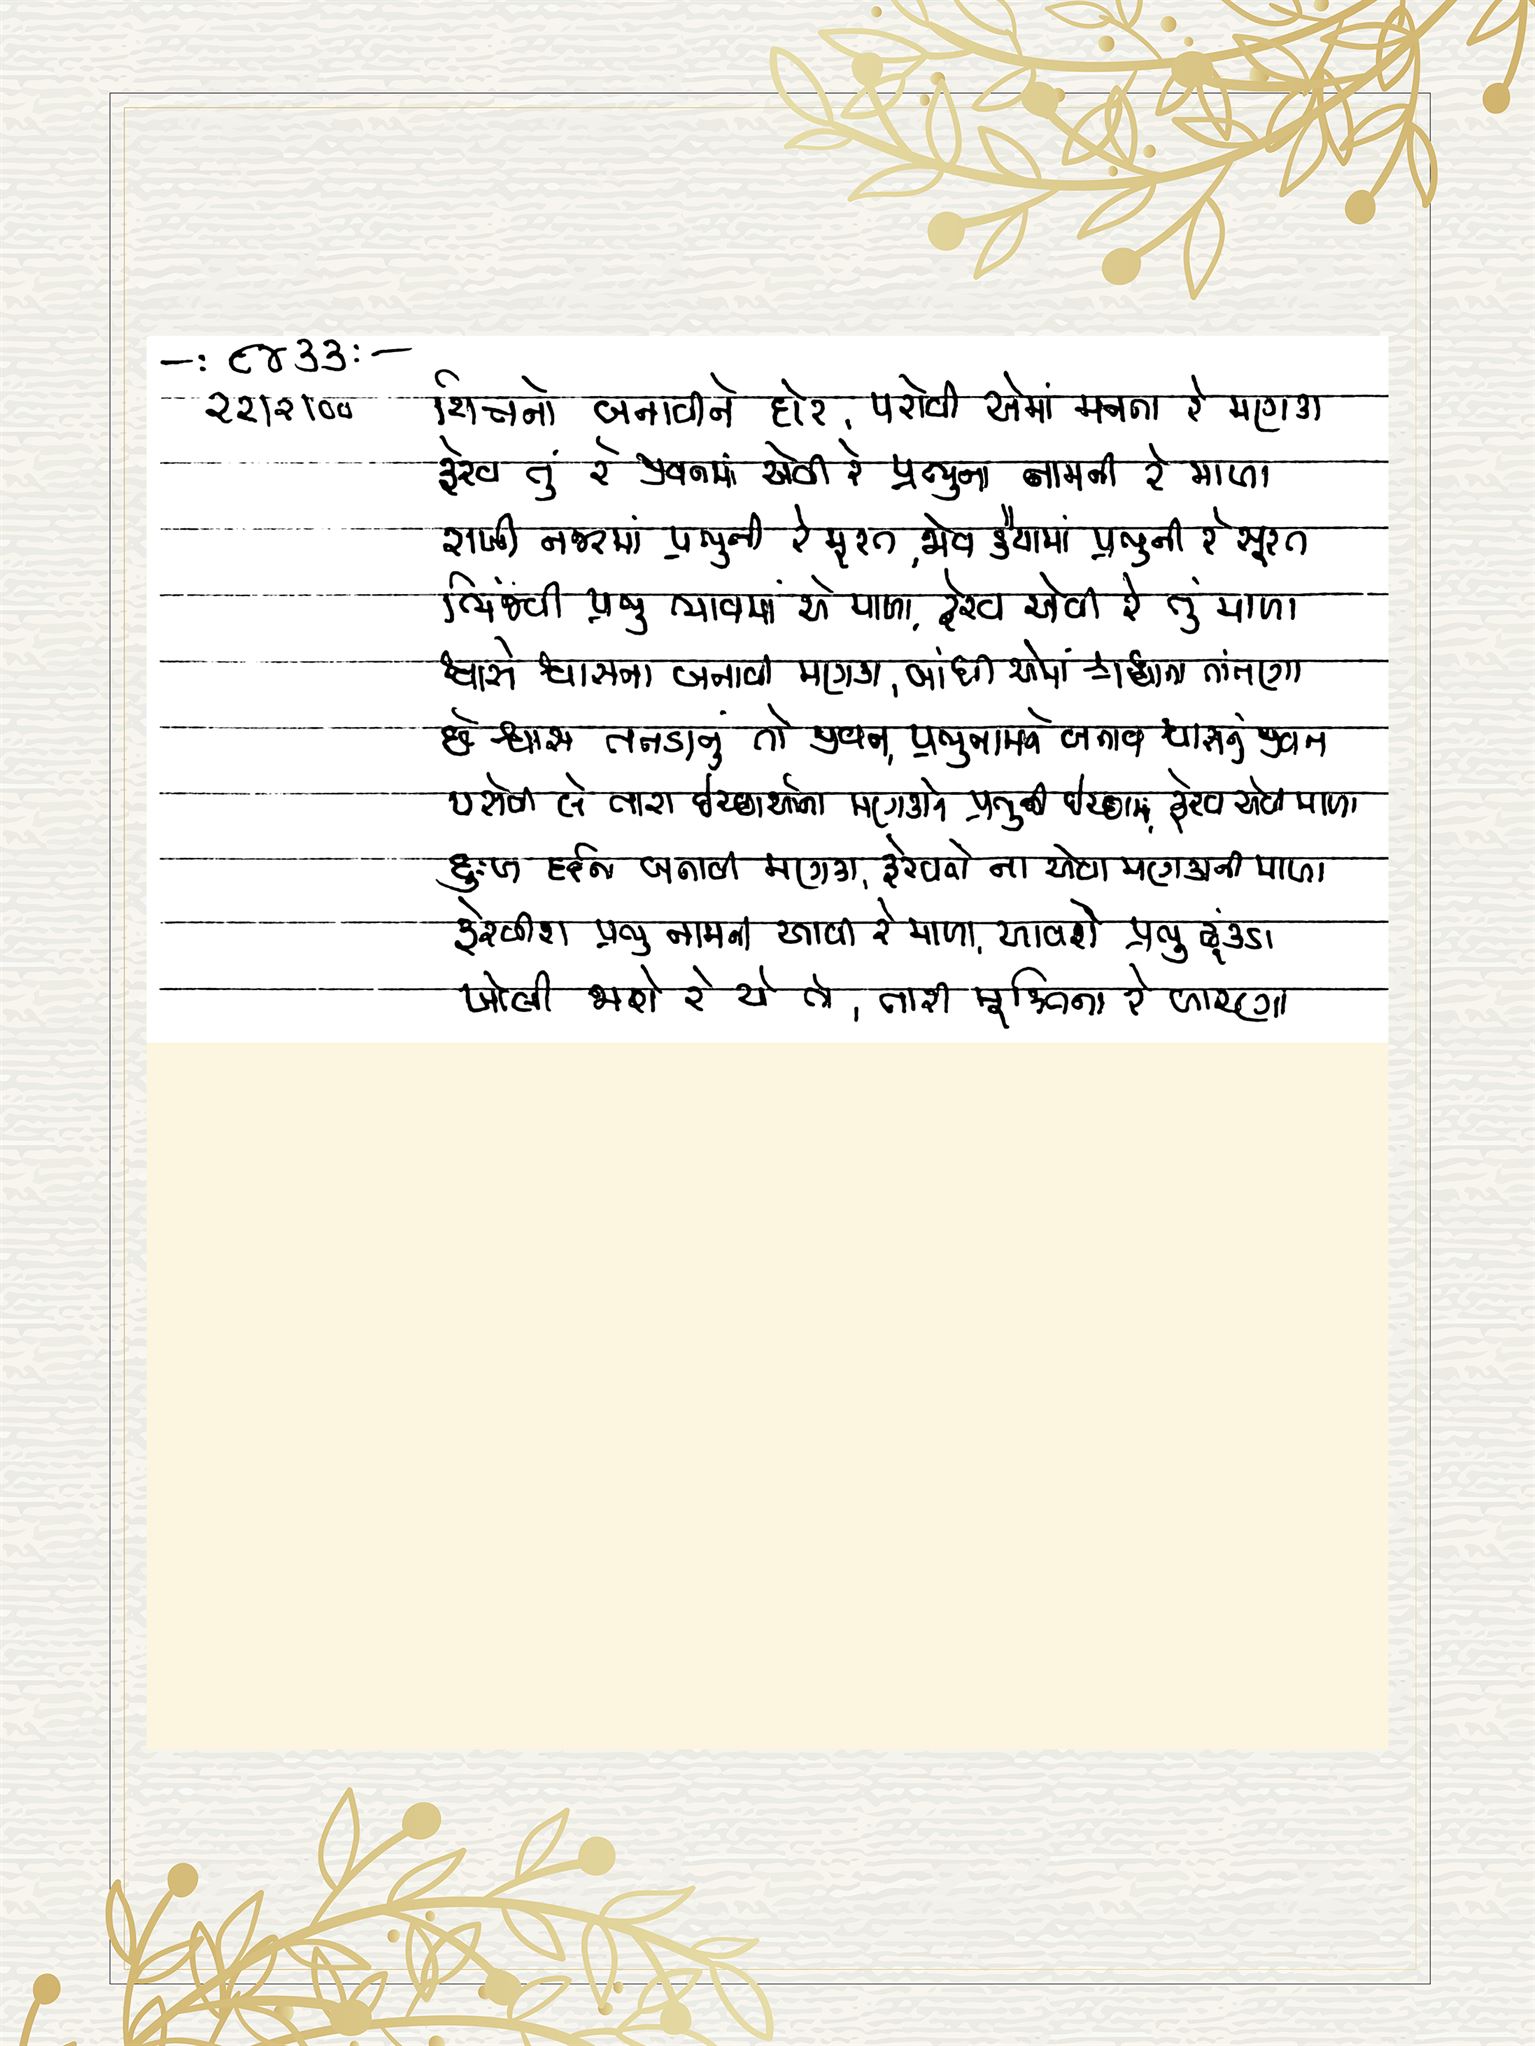 -: ૮૪૩૩:-
૨૨/૨/૦૦ ચિત્તનો બનાવીને દોર, પરોવી એમાં મનના રે મણકા
ફેરવ તું રે જીવનમાં એવી રે પ્રભુના નામની રે માળા
રાખી નજરમાં પ્રભુની રે મૂરત, હૈયામાં પ્રભુની રે સૂરત
પ્રભુ ભાવમાં એ માળા, ફેરવ એવી રે તું માળા
શ્વાસે શ્વાસના બનાવી મણકા, બાંધી એમાં તાંતણા
છે શ્વાસ તનડાનું તો જીવન, પ્રભુનામને બનાવ શ્વાસનું જીવન
પરોવી લે તારા ઇચ્છાઓના મણકાને પ્રભુની ઇચ્છામાં, ફેરવ એવી માળા
દુઃખ દર્દના બનાવી મણકા, ફેરવતો ના એવા મણકાની માળા
ફેરવીશ પ્રભુ નામની આવી રે માળા, આવશે પ્રભુ ઢૂંકડા
ખોલી જાશે રે એ તો, તારી મૂક્તિના રે બારણા